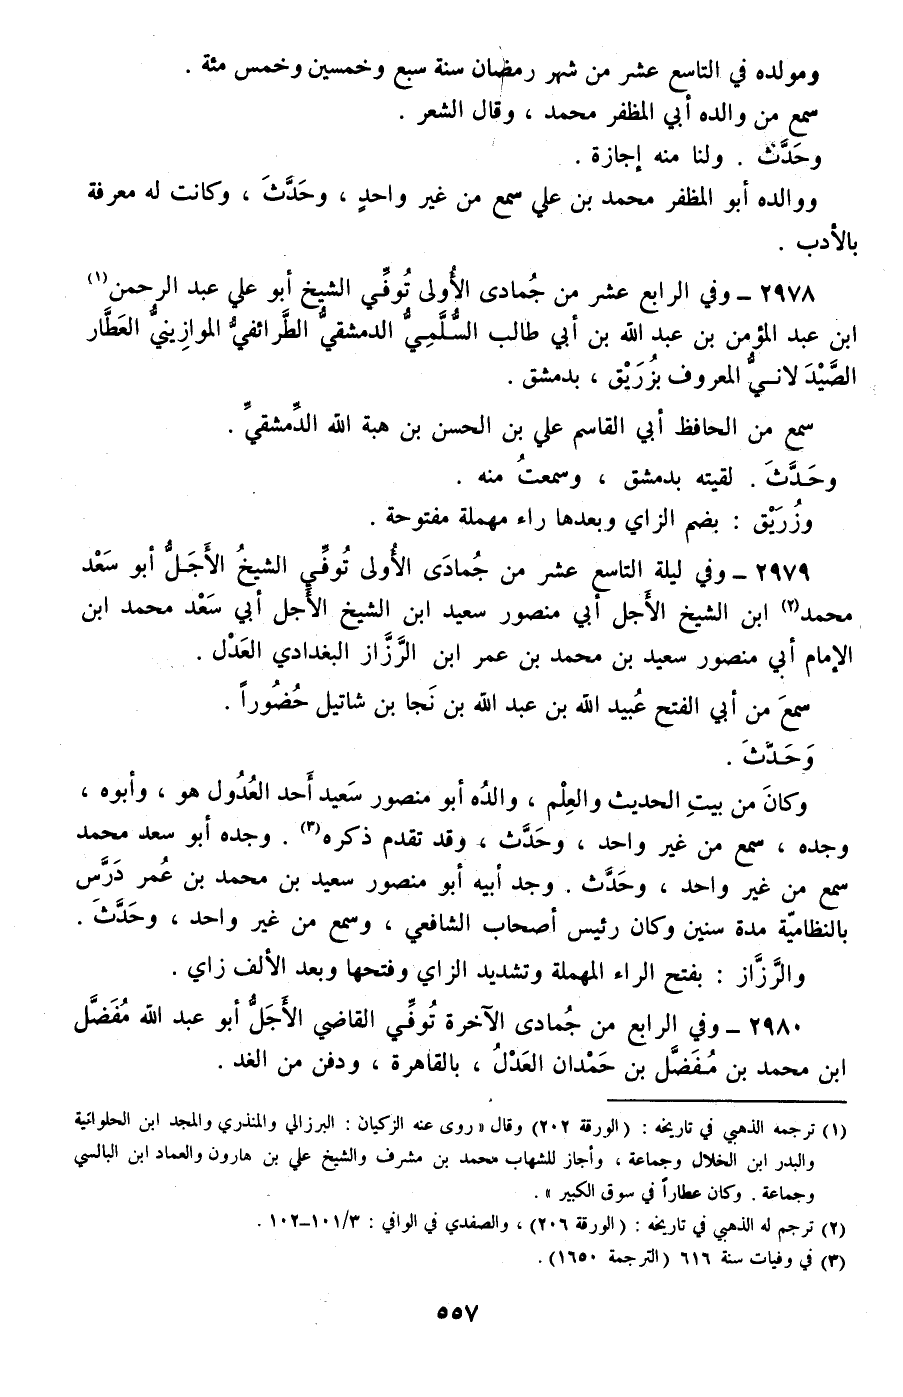 ومولده في التاسع عشر من شهر رمضان سنة سبع وخمسين وخمس مئة .
سمع من والده أبي المظفر محمد ، وقال الشعر .
وحَدَّثَ . ولنا منه إجازة .
ووالده أبو المظفر محمد بن علي سمع من غير واحدٍ ، وحَدَّثَ ، وكانت له معرفة
بالأدب .
٢٩٧٨ ـ وفي الرابع عشر من جُمادى الأُولى تُوفِّي الشيخ أبو علي عبد الرحمن(١)
ابن عبد المؤمن بن عبد الله بن أبي طالب السُّلَّمِيُّ الدمشقيُّ الطَّرائفيُّ الموازِينيُّ العَطَّار
الصَّيْدَلانـيُّ المعروف بزُرَيْق ، بدمشق .
سمع من الحافظ أبي القاسم علي بن الحسن بن هبة الله الدِّمشقيِّ .
وحَدَّثَ . لقيته بدمشق ، وسمعتُ منه .
وزُرَيْق : بضم الزاي وبعدها راء مهملة مفتوحة .
٢٩٧٩ ـ وفي ليلة التاسع عشر من جُمادَى الأُولى تُوفِّي الشيخُ الأَجَلُّ أبو سَعْد
محمد(٢) ابن الشيخ الأَجل أبي منصور سعيد ابن الشيخ الأَجل أبي سَعْد محمد ابن
الإمام أبي منصور سعيد بن محمد بن عمر ابن الرَّزَّاز البغدادي العَدْل .
سمعَ من أبي الفتح عُبيد الله بن عبد الله بن نَجا بن شاتيل حُضُوراً .
وَحَدَّثَ .
وكانَ من بيتِ الحديث والعِلْم ، والدُه أبو منصور سَعيد أَحد العُدُول هو ، وأبوه ،
وجده ، سمع من غير واحد ، وحَدَّث ، وقد تقدم ذكره(٣) . وجده أبو سعد محمد
سمع من غير واحد ، وحَدَّث . وجد أبيه أبو منصور سعيد بن محمد بن عُمر دَرَّس
بالنظاميّة مدة سنين وكان رئيس أصحاب الشافعي ، وسمع من غير واحد ، وحَدَّثَ .
والرَّزَّاز : بفتح الراء المهملة وتشديد الزاي وفتحها وبعد الألف زاي .
٢٩٨٠ ـ وفي الرابع من جُمادى الآخرة تُوفِّي القاضي الأَجَلُّ أبو عبد الله مُفَضَّل
ابن محمد بن مُفَضَّل بن حَمْدان العَدْلُ ، بالقاهرة ، ودفن من الغد .
(١) ترجمه الذهبي في تاريخه : (الورقة ٢٠٢) وقال « روى عنه الزكيان : البرزالي والمنذري والمجد ابن الحلوانية
والبدر ابن الخلال وجماعة ، وأجاز للشهاب محمد بن مشرف والشيخ علي بن هارون والعماد ابن البالسي
وجماعة . وكان عطاراً في سوق الكبير » .
(٢) ترجم له الذهبي في تاريخه : (الورقة ٢٠٦) ، والصفدي في الوافي : ٣/ ١٠١-١٠٢ .
(٣) في وفيات سنة ٦١٦ (الترجمة ١٦٥٠) .
٥٥٧